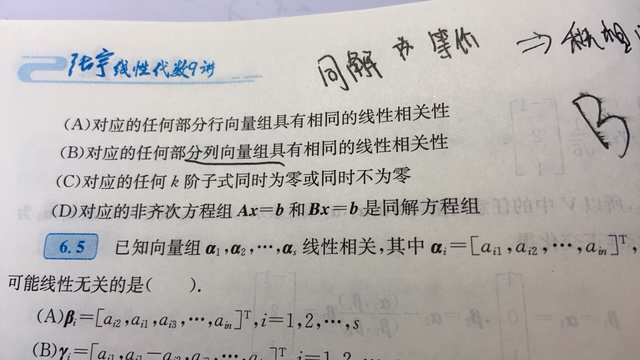 同解 等价 ⇒ 秩相
张宇线性代数9讲
(A)对应的任何部分行向量组具有相同的线性相关性
(B)对应的任何部分列向量组具有相同的线性相关性
(C)对应的任何 k 阶子式同时为零或同时不为零
(D)对应的非齐次方程组 Ax=b 和 Bx=b 是同解方程组
6.5 已知向量组 α₁,α₂,⋯,αₛ 线性相关,其中 αᵢ=[aᵢ₁,aᵢ₂,⋯,aᵢₙ]ᵀ,
可能线性无关的是( ).
(A)βᵢ=[aᵢ₂,aᵢ₁,aᵢ₃,⋯,aᵢₙ]ᵀ,i=1,2,⋯,s
(B)γᵢ=[aᵢ₁,aᵢ₁-aᵢ₂,